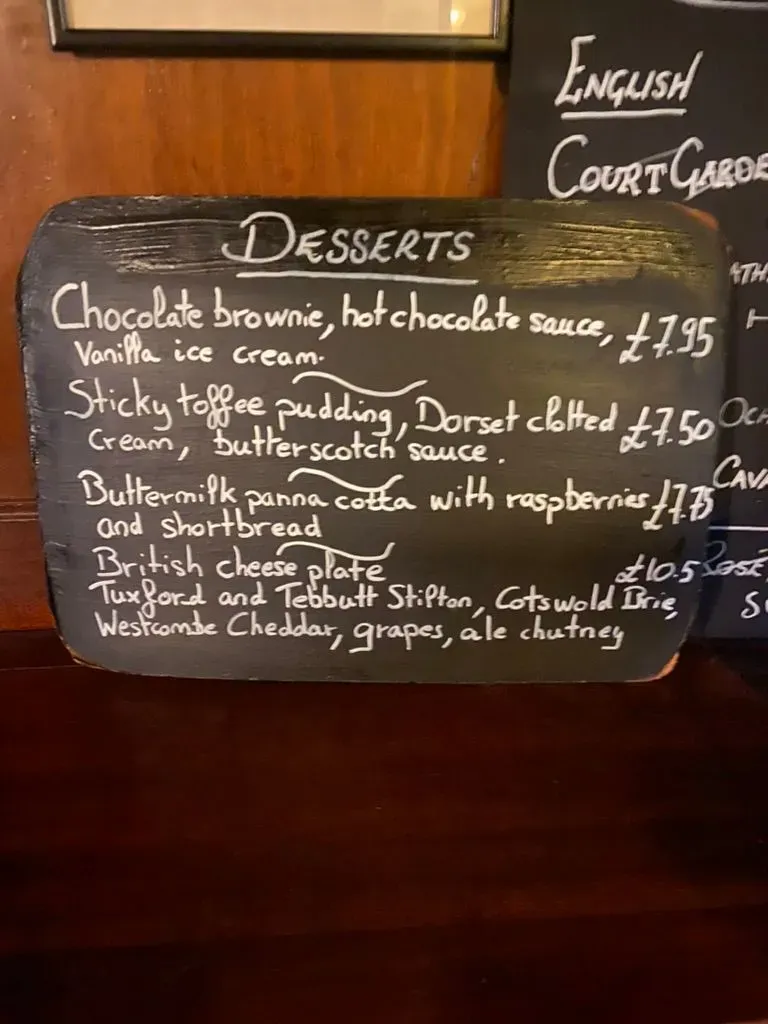 ENGLISH
COURT GARDE
DESSERTS
Chocolate brownie, hot chocolate sauce, £7.95
Vanilla ice cream.
Sticky toffee pudding, Dorset clotted £7.50
Cream, butterscotch sauce.
Buttermilk panna cotta with raspberries £7.75
and shortbread
British cheese plate £10.5
Tuxford and Tebbutt Stilton, Cotswold Brie,
Westcombe Cheddar, grapes, ale chutney
CAVA
ROSÉ